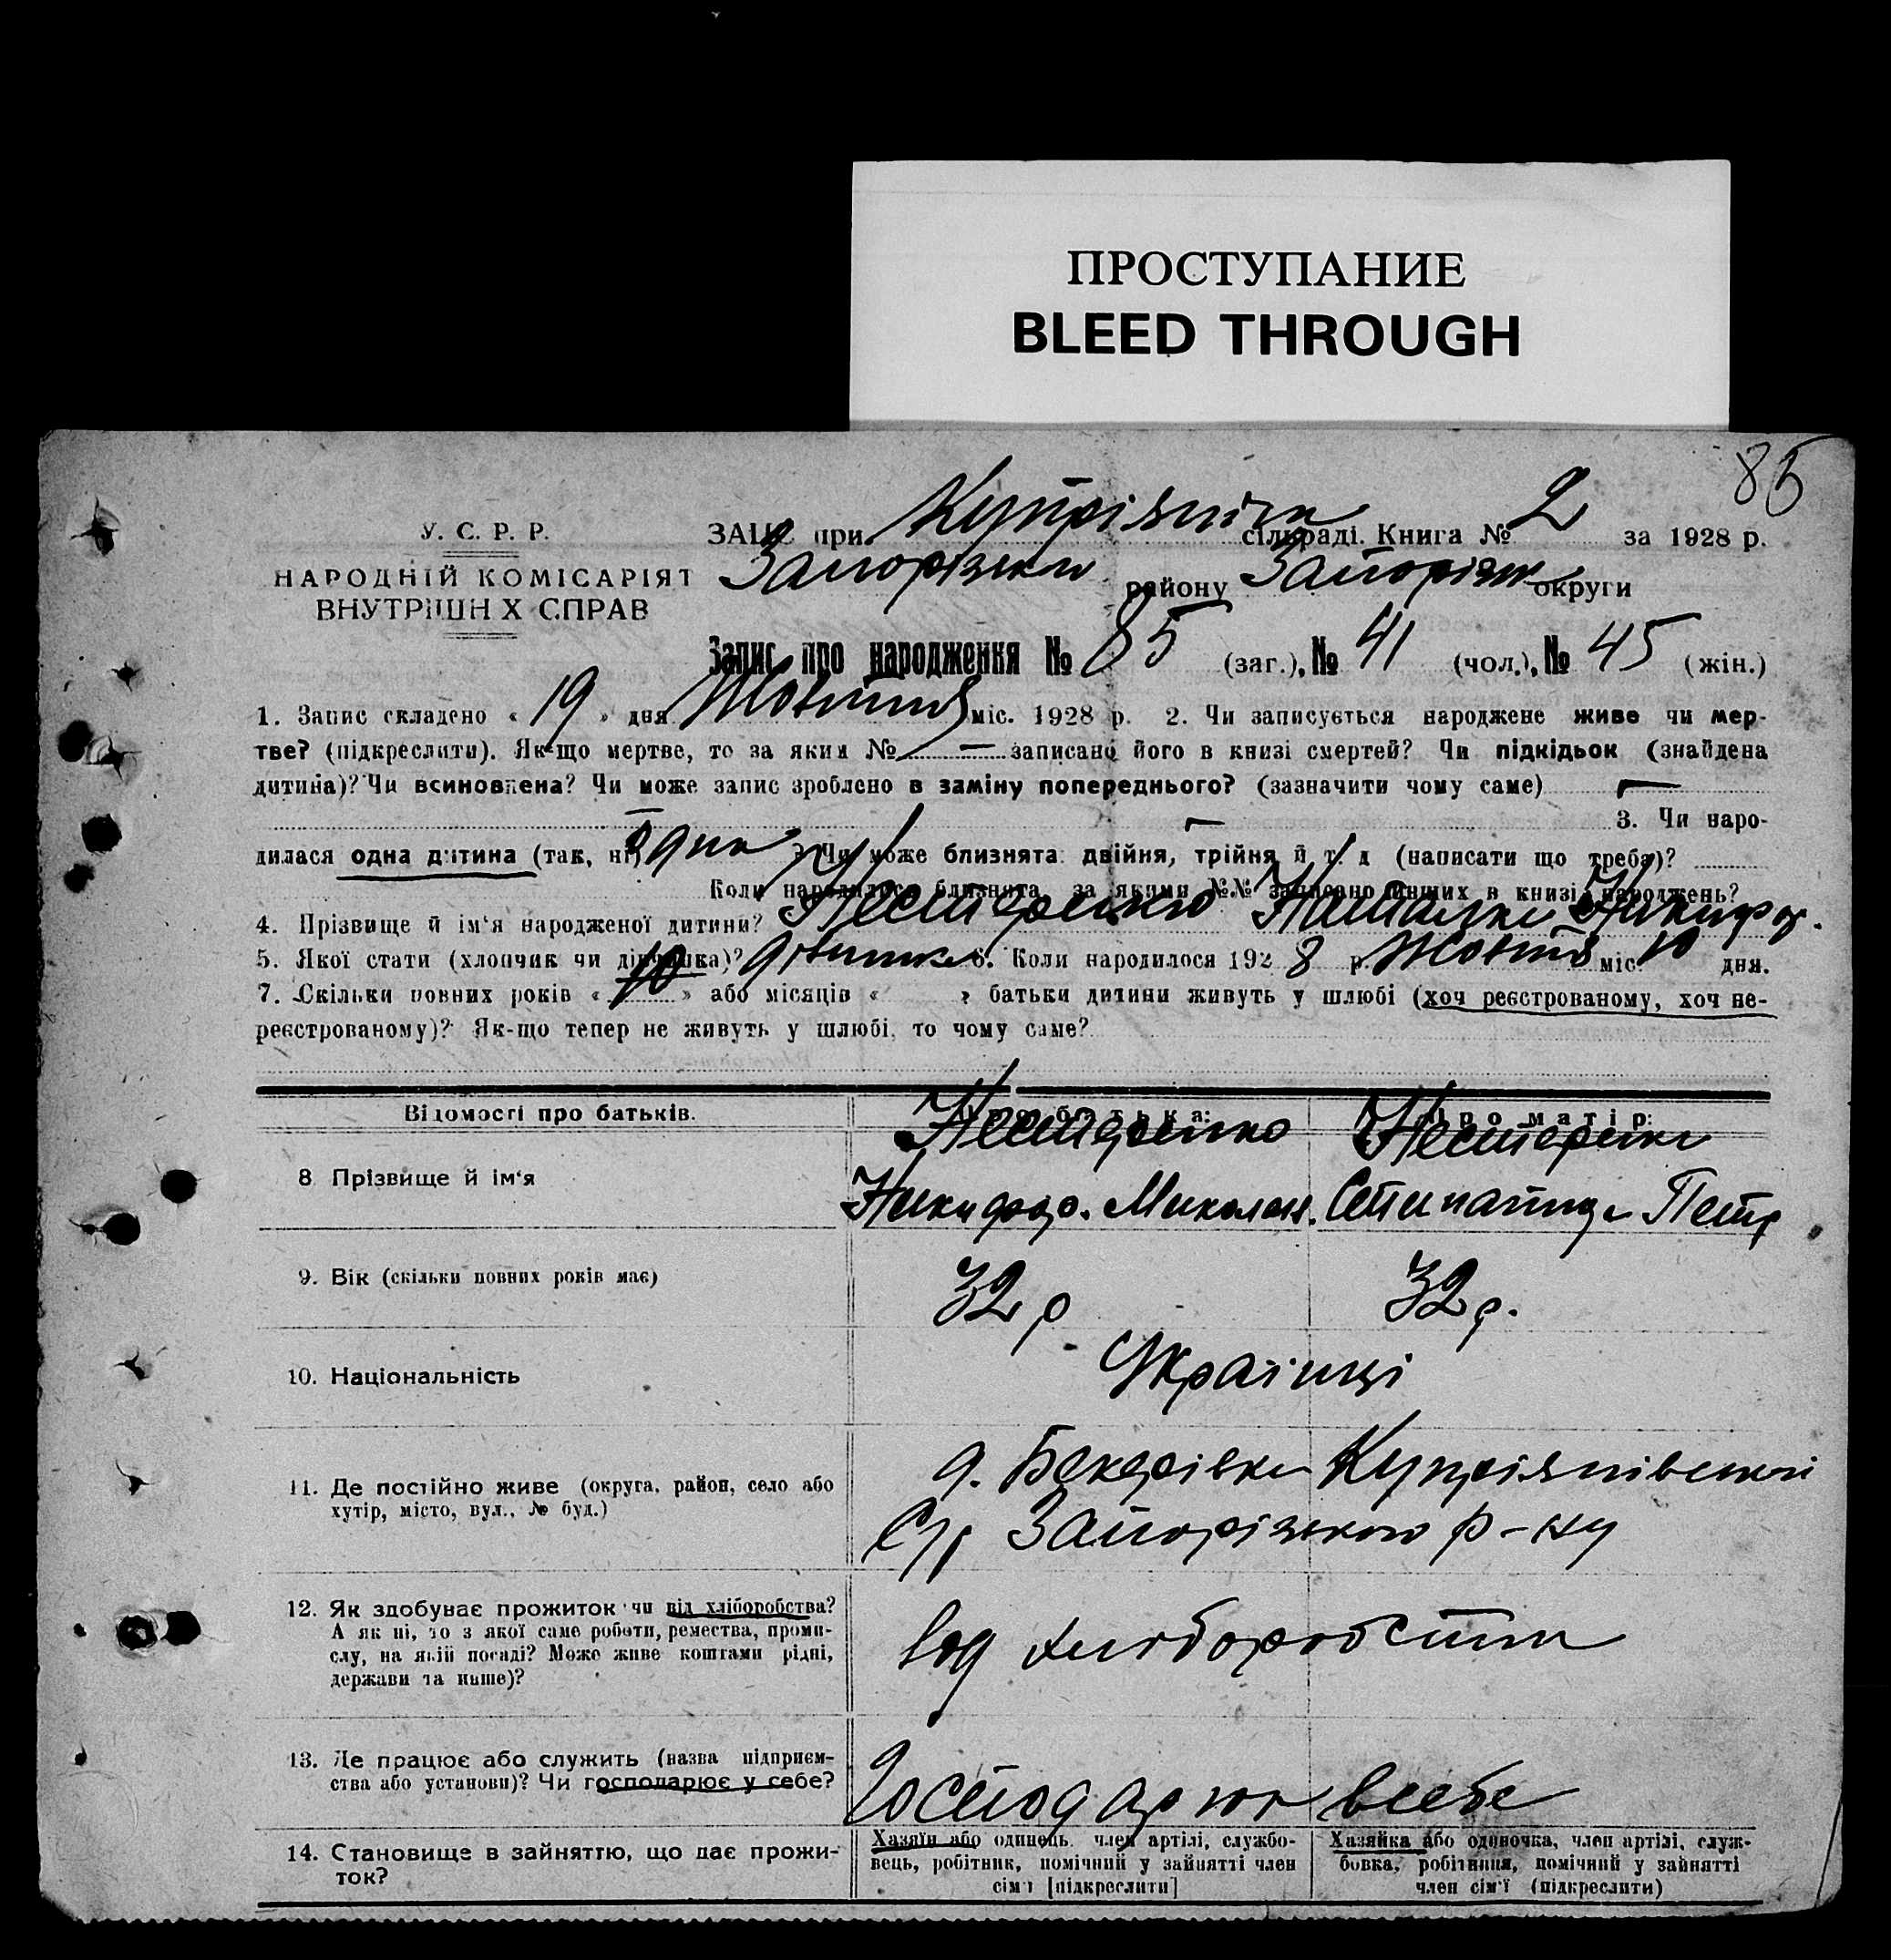 ПРОСТУПАНИЕ
BLEED THROUGH
85
У. С. Р. Р.
НАРОДНІЙ КОМІСАРІЯТ
ВНУТРІШН Х СПРАВ
ЗАЦС при сільраді. Книга № 2 за 1928 р.
району округи
Запис про народження № 85 (заг.), № 41 (чол.), № 45 (жін.)
1. Запис складено « 19 » дня міс. 1928 р. 2. Чи записується народжене живе чи мер-
тве? (підкреслити). Як-що мертве, то за яким № — записано його в книзі смертей? Чи підкідьок (знайдена
дитина)? Чи всиновлена? Чи може запис зроблено в заміну попереднього? (зазначити чому саме) —
— 3. Чи наро-
дилася одна дитина (так, ні) одна ? Чи може близнята: двійня, трійня й т. д (написати що треба)?
Коли народилося близнята, за якими №№ записано инших в книзі народжень?
4. Прізвище й ім'я народженої дитини? Нестеренко
5. Якої стати (хлопчик чи дівчинка)? 6. Коли народилося 1928 р. міс. 10 дня.
7. Скільки повних років « 10 » або місяців « » батьки дитини живуть у шлюбі (хоч реєстрованому, хоч не-
реєстрованому)? Як-що тепер не живуть у шлюбі, то чому саме?
Відомості про батьків. Про батька: Про матір:
Нестеренко Нестеренко
8 Прізвище й ім'я
Никифор. Миколаєв. Петр
9. Вік (скільки повних років має) 32 р 32 р.
10. Національність Українці
11. Де постійно живе (округа, район, село або
хутір, місто, вул., № буд.)
д. Бекерівка Купріянівської
С/р Запорізького р-ну
12. Як здобуває прожиток чи від хліборобства?
А як ні, то з якої саме роботи, ремества, проми-
слу, на якій посаді? Може живе коштами рідні,
держави та инше)?
від хліборобства
13. Де працює або служить (назва підприєм-
ства або установи)? Чи господарює у себе?
Господарюют всебе
14. Становище в зайняттю, що дає прожи-
ток?
Хазяїн або одинець, член артілі, службо-
вець, робітник, помічний у зайнятті член
сім'ї [підкреслити]
Хазяйка або одиночка, член артілі, служ-
бовка, робітниця, помічний у зайнятті
член сім'ї (підкреслити)